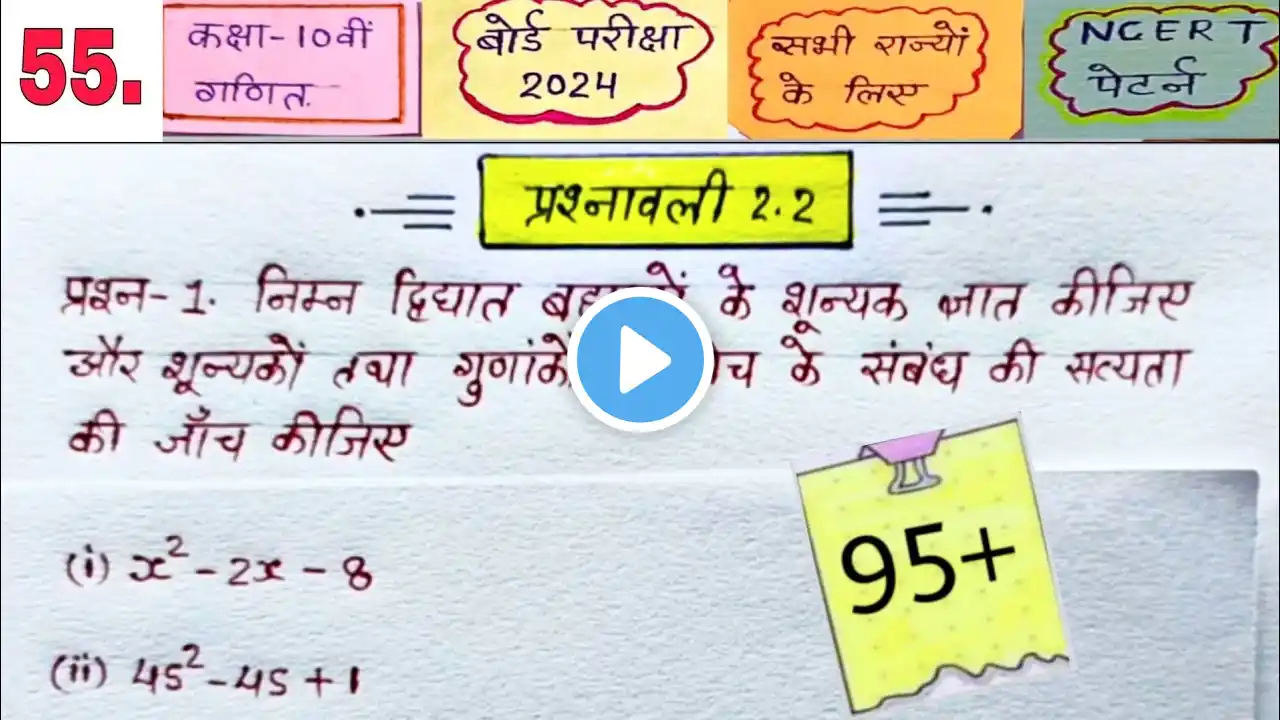 55.
कक्षा-10वीं
गणित.
बोर्ड परीक्षा
2024
सभी राज्यों
के लिए
NCERT
पेटर्न
प्रश्नावली 2.2
प्रश्न-1. निम्न द्विघात के शून्यक ज्ञात कीजिए
और शून्यकों तथा के संबंध की सत्यता
की जाँच कीजिए
(i) x² - 2x - 8
(ii) 4s² - 4s + 1
95+